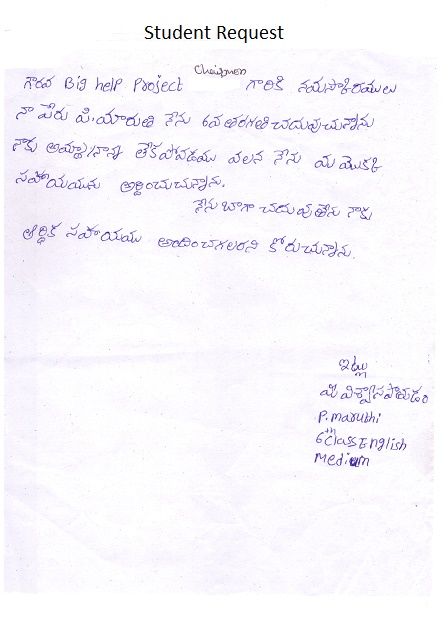 Student Request
Chairman
గౌరవ Big help Project గారికి నమస్కారములు
నా పేరు పి.మారుతి నేను 6వ తరగతి చదువుచున్నాను
నాకు అమ్మా/నాన్నా లేకపోవడము వలన నేను మీ యొక్క
సహాయమును అర్థించుచున్నాను.
నేను బాగా చదువుతాను నాకు
ఆర్థిక సహాయము అందించగలరని కోరుచున్నాను.
ఇట్లు
మీ విశ్వాసపాత్రుడు
P. maruthi
6th Class English
Medium